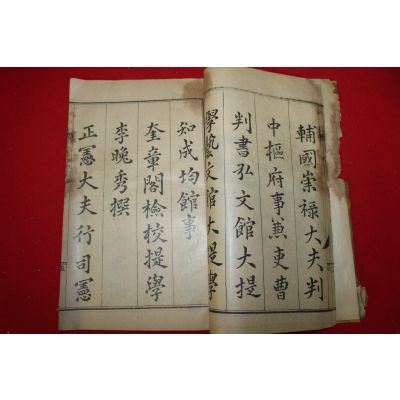 輔國崇禄大夫判
中樞府事兼吏曹
判書弘文館大提
學藝文館大提學
知成均館事
奎章閣檢校提學
李晚秀撰
正憲大夫行司憲